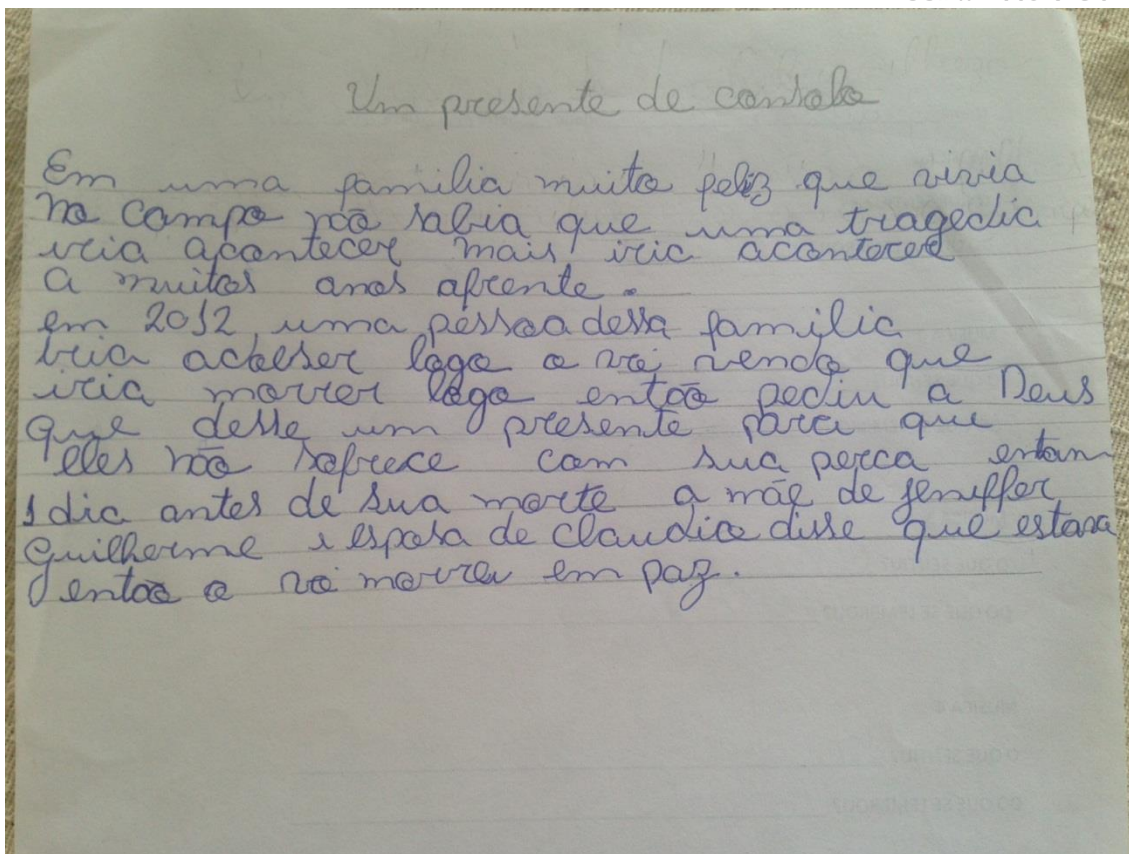 Um presente de consolo
Em uma familia muito feliz que vivia
no campo não sabia que uma tragedia
iria acontecer mais iria acontecer
a muitos anos afrente.
em 2012 uma pessoa dessa familia
iria adoeser logo o vô vendo que
iria morrer logo então pediu a Deus
que desse um presente para que
eles não sofrece com sua perca entam
1 dia antes de sua morte a mãe de Jeniffer
Guilherme e esposa de Claudio disse que estava
então o vô morreu em paz.